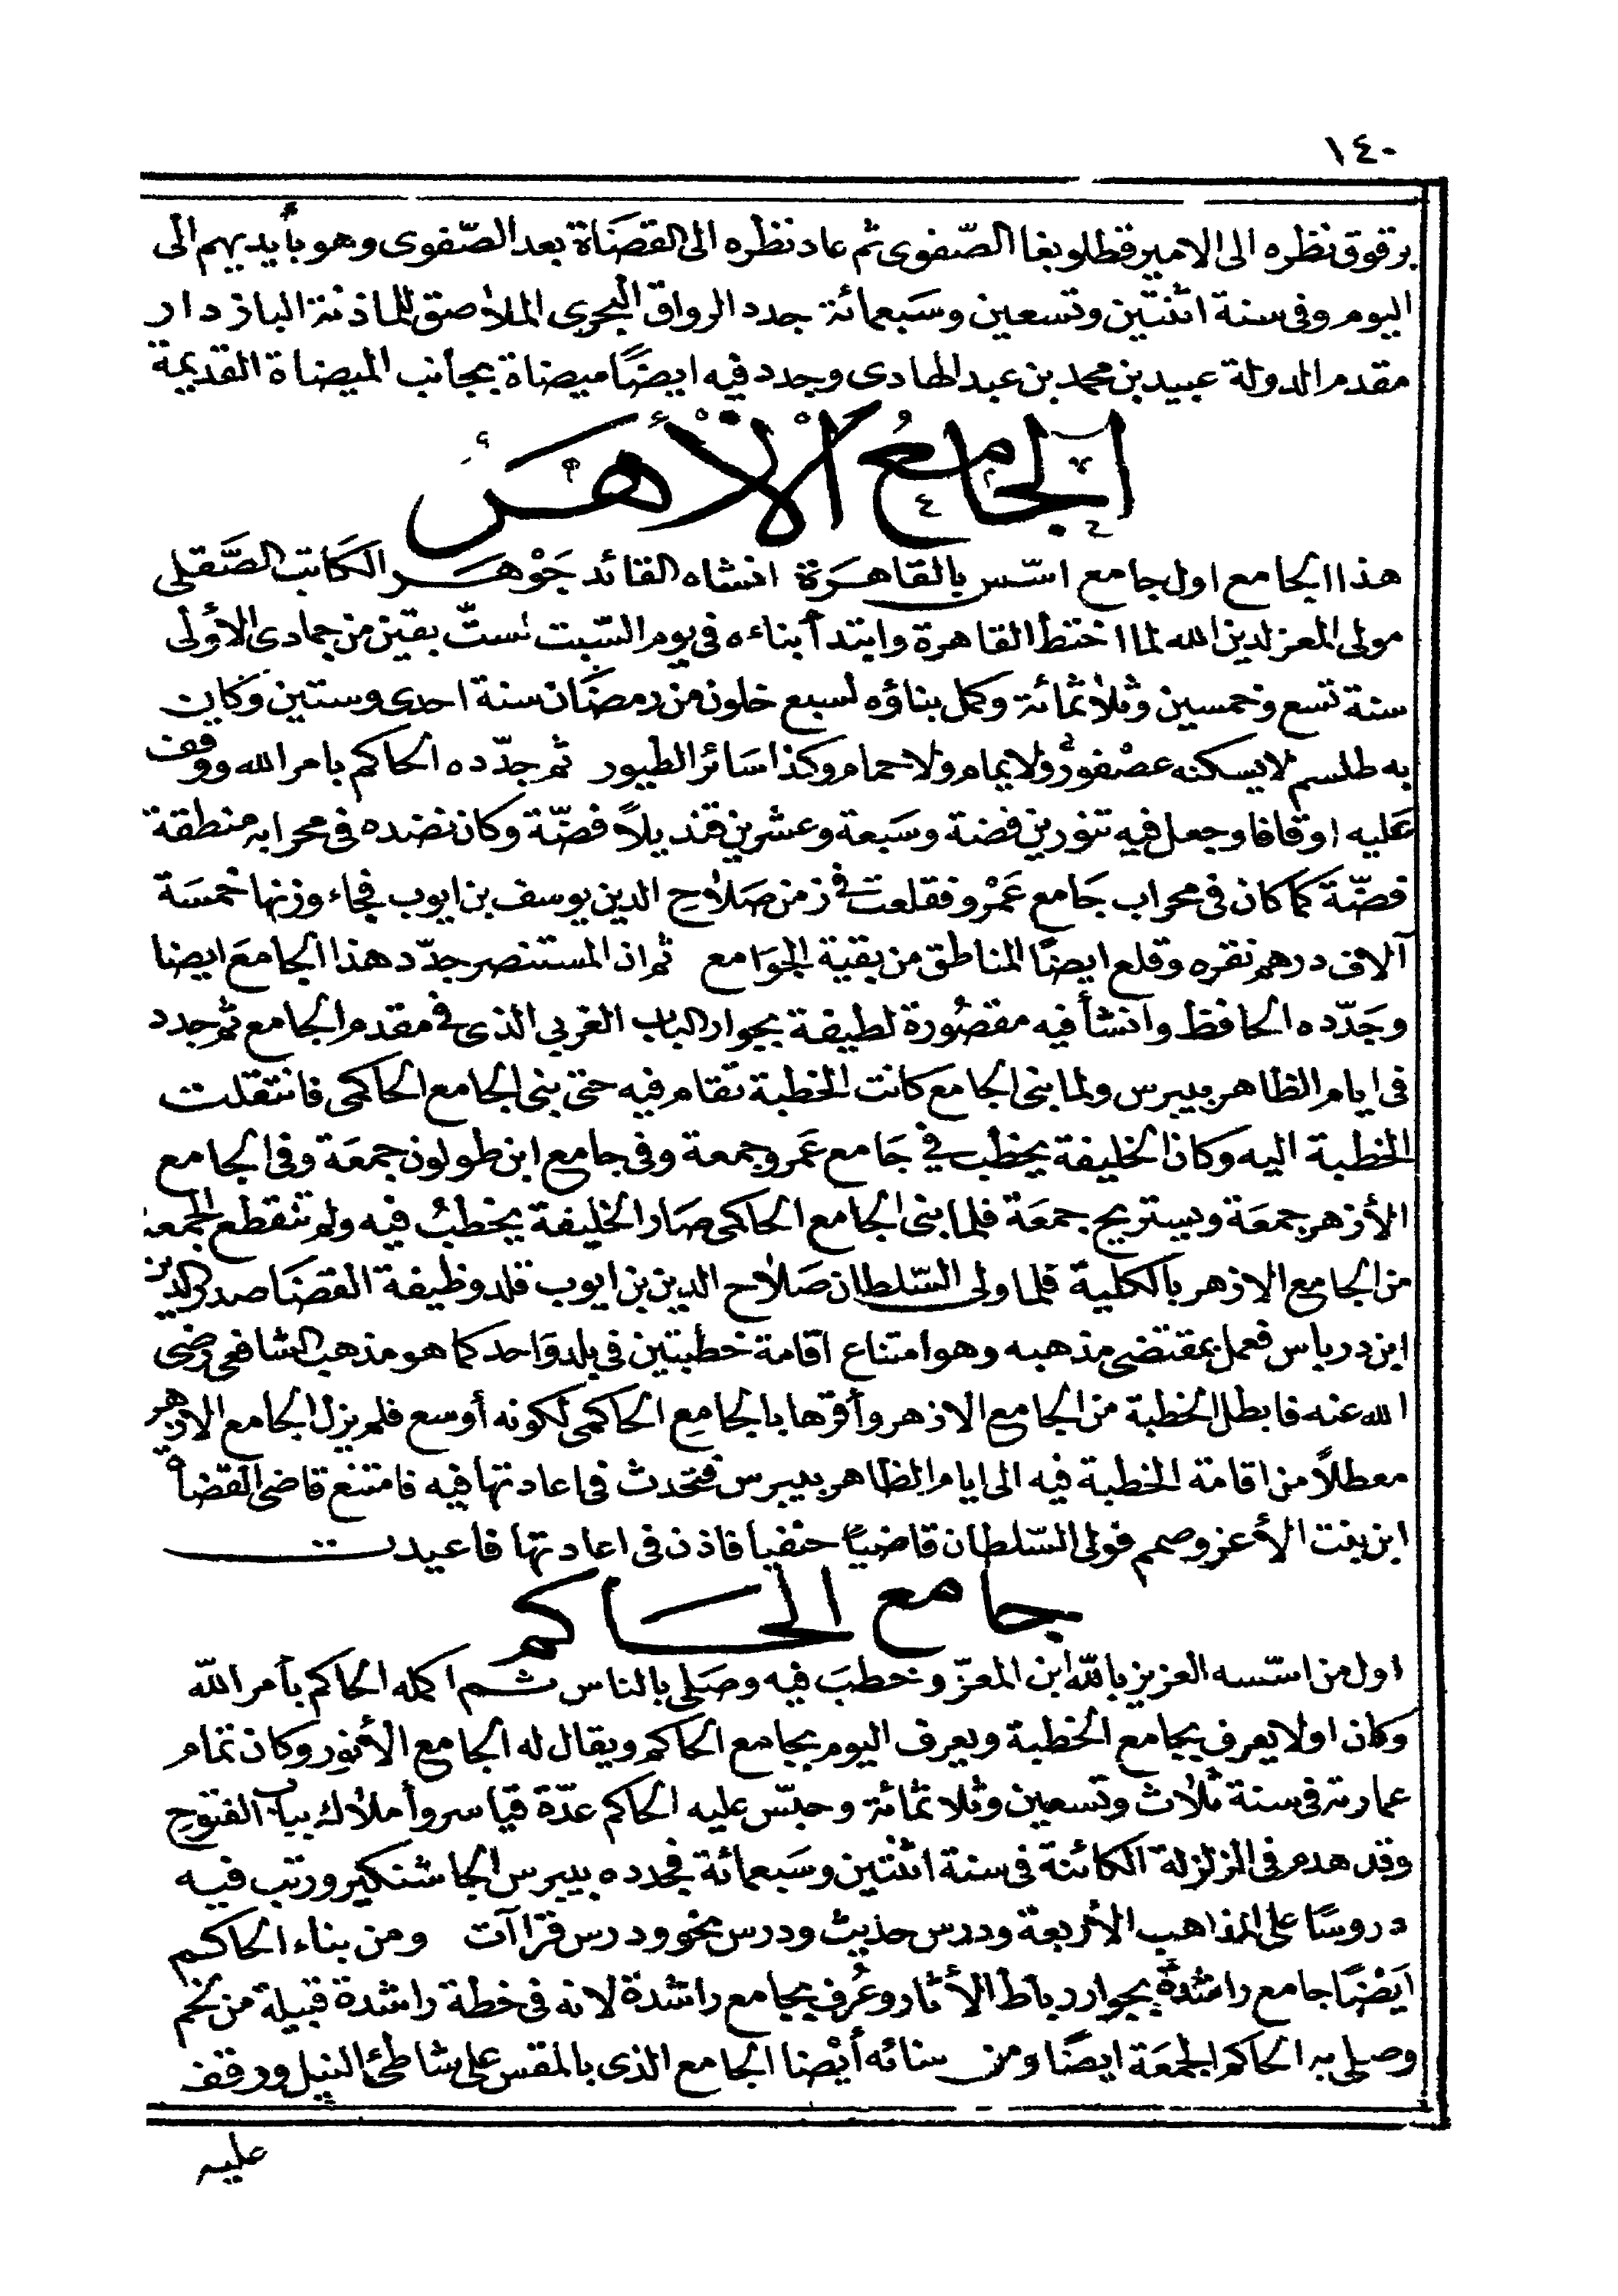 ١٤٠
برقوق نظره الى الامير قطلوبغا الصّفوى ثم عاد نظره الى القضاة بعد الصّفوى وهو بأيديهم الى
اليوم وفى سنة اثنتين وتسعين وسَبعمائة جدد الرواق البحرى الملاصق للماذنة الباز دار
مقدم الدولة عبيد بن محمد بن عبد الهادى وجدد فيه ايضًا ميضاة بجانب الميضاة القديمة
الجامعُ الأَزْهَر
هذا الجامع اول جامع اسّس بالقاهرَة انشاه القائد جَوْهَر الكاتب الصَّقلى
مولى المعز لدين الله لما اختط القاهرة وابتدأ بناءه فى يوم السّبت لستّ بقين من جمادى الأولى
سنة تسع وخمسين وثلاثمائة وكمل بناؤه لسبع خلون من رمضَان سنة احدى وستين وكان
به طلسم لا يسكنه عصْفورٌ ولا يمام ولا حمام وكذا سَائر الطيور ثم جدّده الحاكم بامر الله ووقف
عَليه اوقافا وجعل فيه تنورين فضة وسَبعة وعشرين قنديلاً فضّة وكان نضده فى محرابه منطقة
فضّة كما كان فى محراب جَامع عَمْرو فقلعت فى زمن صَلاح الدين يوسف بن ايوب فجاء وزنها خمسَة
آلاف درهم نقره وقلع ايضًا المناطق من بقية الجوَامع ثم ان المستنصر جدّد هذا الجامعَ ايضا
وجَدّده الحافظ وانشأ فيه مقصُورة لطيفة بجوار الباب الغربي الذى فى مقدم الجامع ثم جدد
فى ايام الظاهر بيبرس ولما بنى الجامع كانت الخطبة تقام فيه حتى بنى الجامع الحاكمى فانتقلت
الخطبة اليه وكان الخليفة يخطب في جَامع عَمرو جمعة وفى جامع ابن طولون جمعَة وفى الجامع
الأزهر جمعَة ويستريح جمعَة فلما بنى الجامع الحاكمى صَار الخليفة يخطبُ فيه ولم تنقطع الجمعة
من الجامع الازهر بالكلية فلما ولى السّلطان صَلاح الدين بن ايوب قلد وظيفة القضَا صدر الدين
ابن درباس فعمل بمقتضى مذهبه وهو امتناع اقامة خطبتين فى بلد وَاحد كما هو مذهب الشافعى رضى
الله عنه فابطل الخطبة من الجامع الازهر وأقرّها بالجامع الحاكمى لكونه أوسع فلم يزل الجامع الازهر
معطلاً من اقامة الخطبة فيه الى ايام الظاهر بيبرس فتحدث فى اعادتها فيه فامتنع قاضى القضاة
ابن بنت الأعز وصمم فولى السّلطان قاضيًا حنفيا فاذن فى اعادتها فاعيدت
جامع الحَاكم
اول من اسّسه العزيز بالله ابن المعزّ وخطبَ فيه وصَلى بالناس ثم اكمله الحاكم بأمر الله
وكان اولا يعرف بجامع الخطبة ويعرف اليوم بجامع الحاكم ويقال له الجامع الأنور وكان تمام
عمارته فى سنة ثلاث وتسعين وثلاثمائة وحبّس عليه الحاكم عدّة قياسر وأملاك بباب الفتوح
وقد هدم فى الزلزلة الكائنة فى سنة اثنتين وسَبعمائة فجدده بيبرس الجاشنكير ورتب فيه
دروسًا على المذاهب الأربعة ودرس حديث ودرس نحو ودرس قراآت ومن بناء الحاكم
ايْضًا جامع راشدة بجوار رباط الأثار وعُرف بجامع راشدة لانه فى خطة راشدة قبيلة من لخم
وصلى به الحاكم الجمعَة ايضًا ومن بنائه أيْضا الجامع الذى بالمقس على شاطئ النيل ووقف
عليه